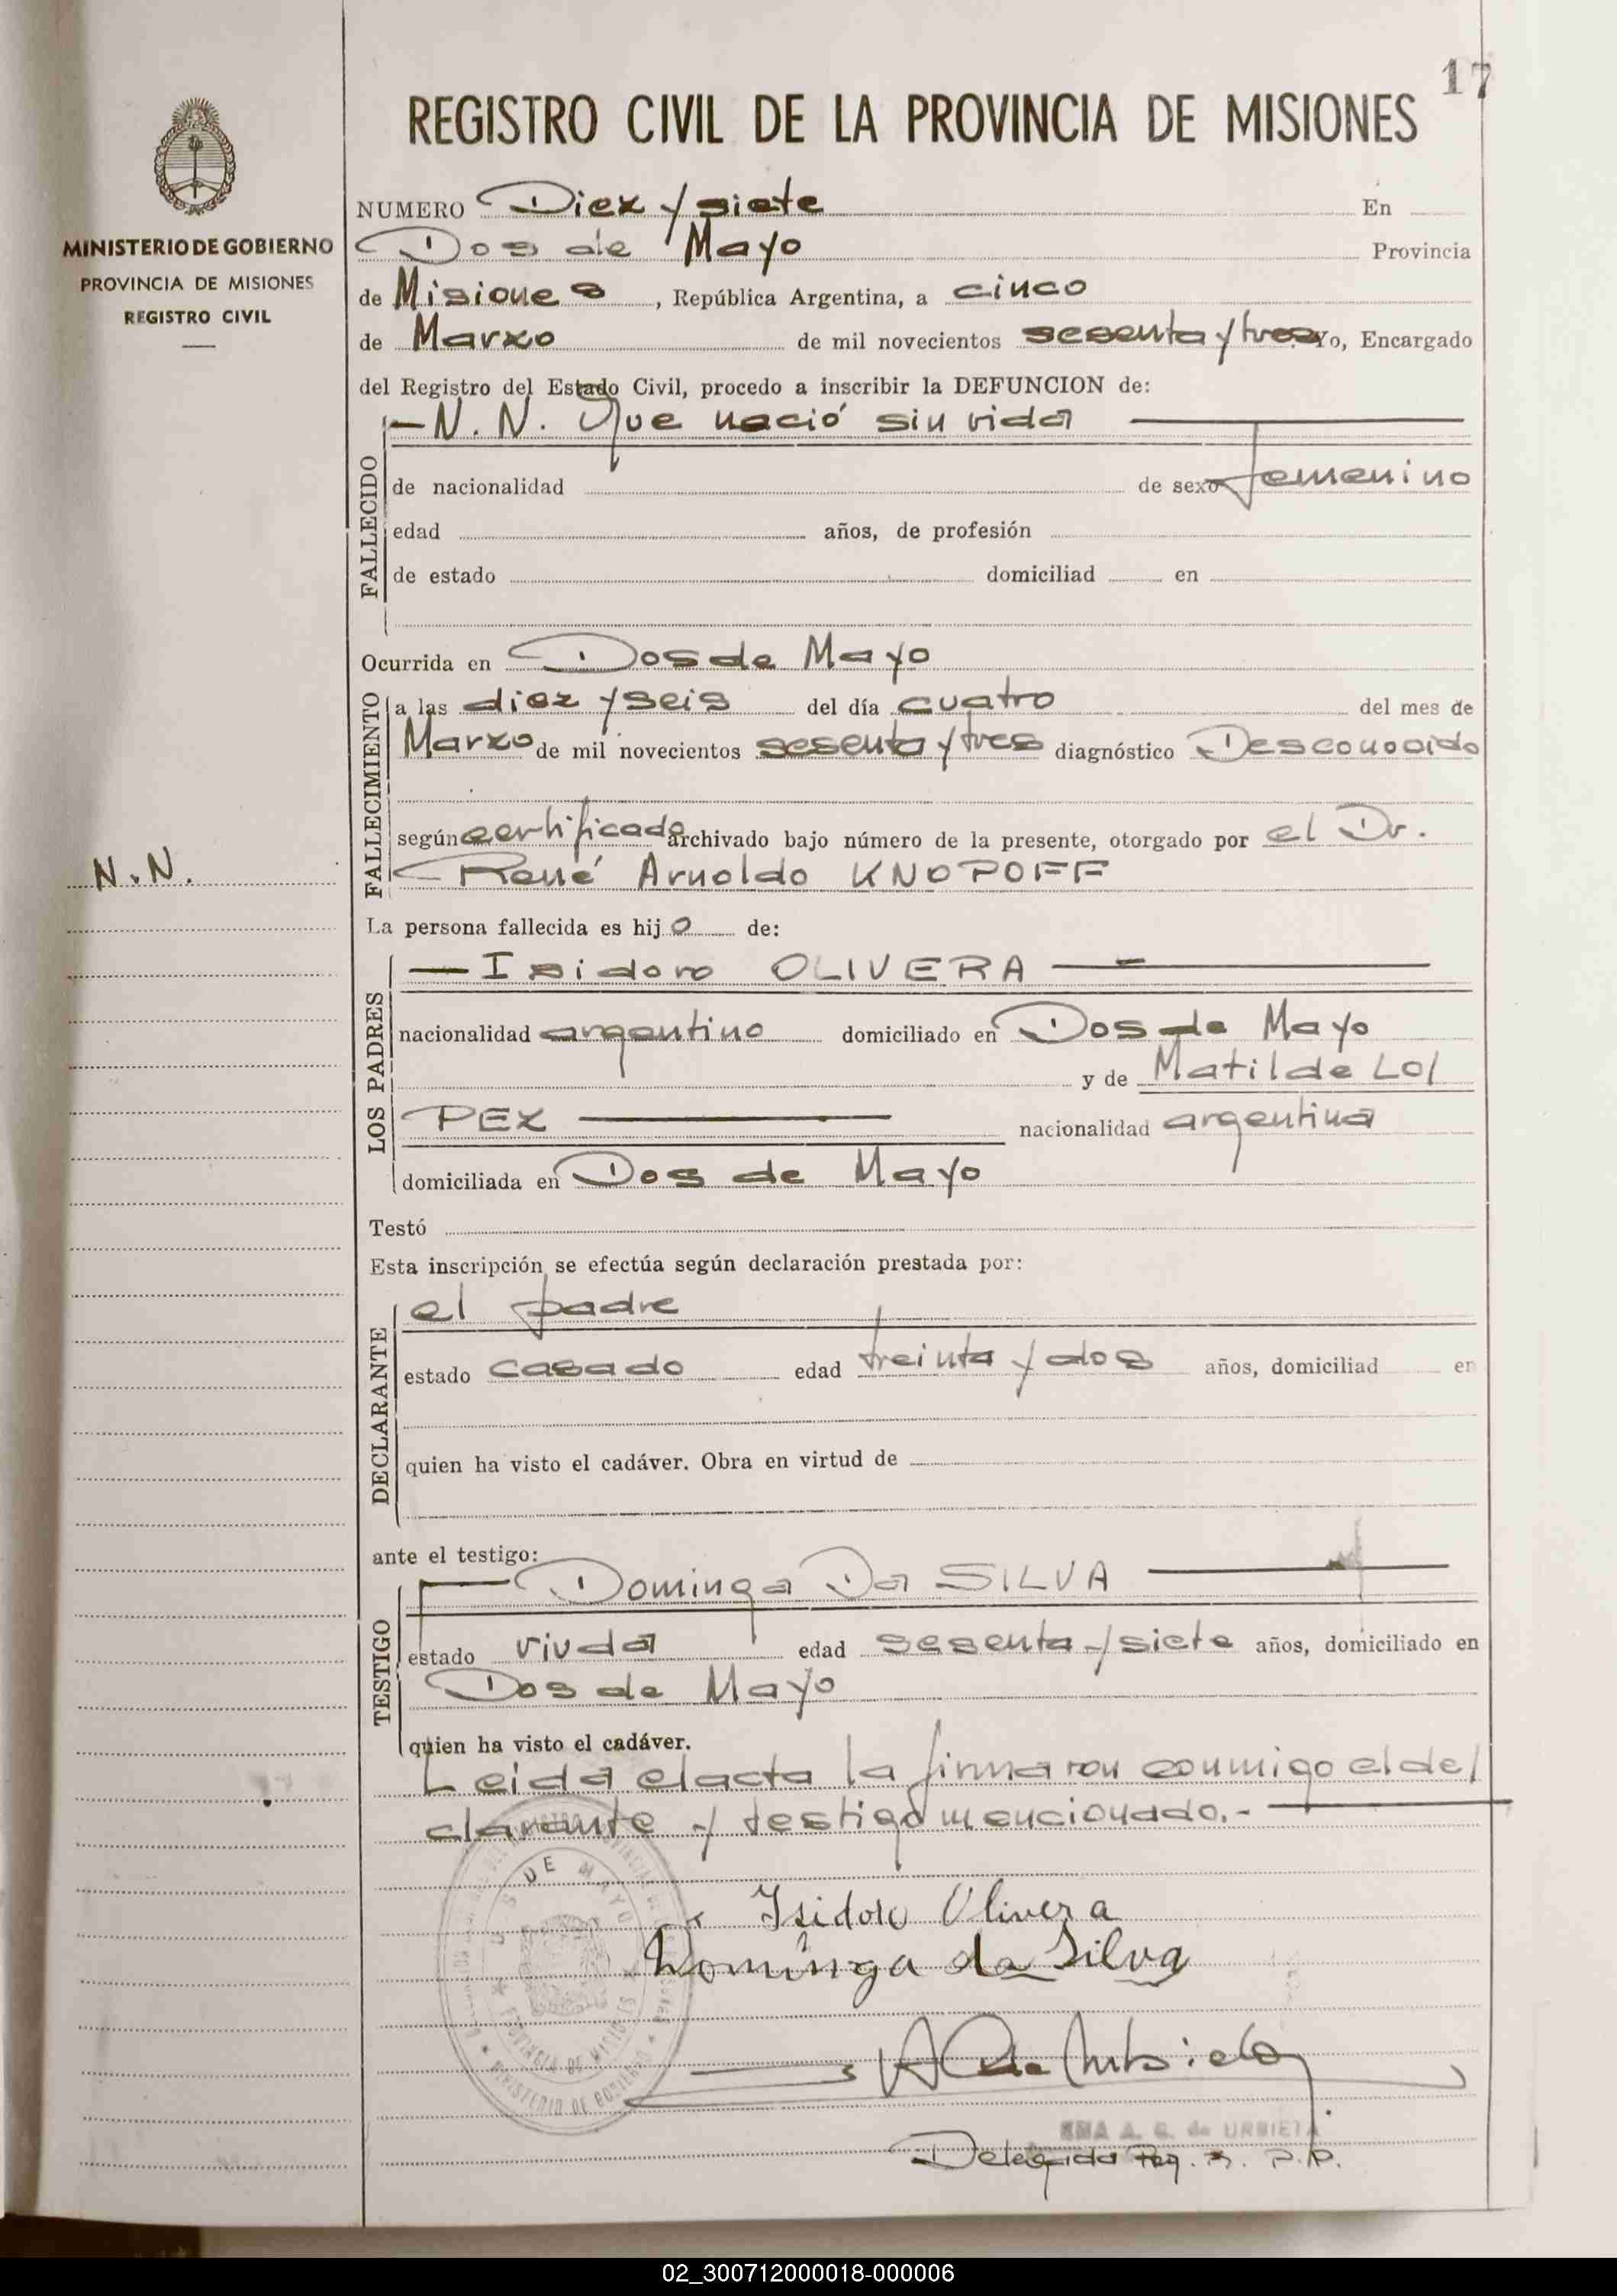 17
REGISTRO CIVIL DE LA PROVINCIA DE MISIONES
MINISTERIO DE GOBIERNO
PROVINCIA DE MISIONES
REGISTRO CIVIL
NUMERO Diez y siete En
Dos de Mayo Provincia
de Misiones, República Argentina, a cinco
de Marzo de mil novecientos sesenta y tres Yo, Encargado
del Registro del Estado Civil, procedo a inscribir la DEFUNCION de:
FALLECIDO
- N. N. Que nació sin vida
de nacionalidad de sexo femenino
edad años, de profesión
de estado domiciliad en
Ocurrida en Dos de Mayo
FALLECIMIENTO
a las diez y seis del día cuatro del mes de
Marzo de mil novecientos sesenta y tres diagnóstico Desconocido
según certificado archivado bajo número de la presente, otorgado por el Dr.
René Arnoldo KNOPOFF
N.N.
La persona fallecida es hijo de:
LOS PADRES
- Isidoro OLIVERA
nacionalidad argentino domiciliado en Dos de Mayo
y de Matilde LO/
PEZ nacionalidad argentina
domiciliada en Dos de Mayo
Testó
Esta inscripción se efectúa según declaración prestada por:
DECLARANTE
el padre
estado casado edad treinta y dos años, domiciliad en
quien ha visto el cadáver. Obra en virtud de
ante el testigo:
TESTIGO
Dominga Da SILVA
estado viuda edad sesenta y siete años, domiciliado en
Dos de Mayo
quien ha visto el cadáver.
Leida el acta la firmaron conmigo el de/
clarante y testigo mencionado.-
DOS DE MAYO
PROVINCIA DE MISIONES
MINISTERIO DE GOBIERNO
Isidoro Olivera
Dominga da Silva
A. G. de URBIETA
Delegada
02_300712000018-000006